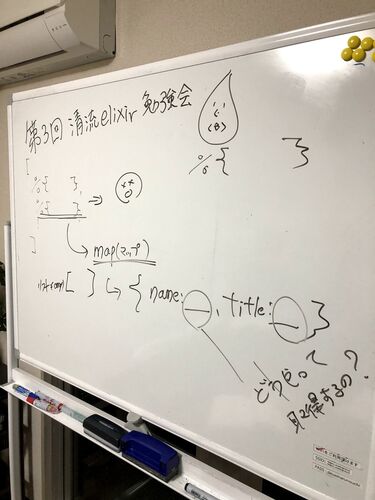 第3回 清流elixir 勉強会
%{ }
[
%{ },
%{ }
]
⇒
map(
[ ] ↳ { name: , title: }
どうやって
取得するの?